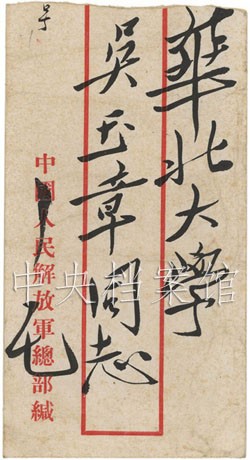 華北大學
吳玉章同志
中國人民解放軍總部緘
毛
中央档案馆